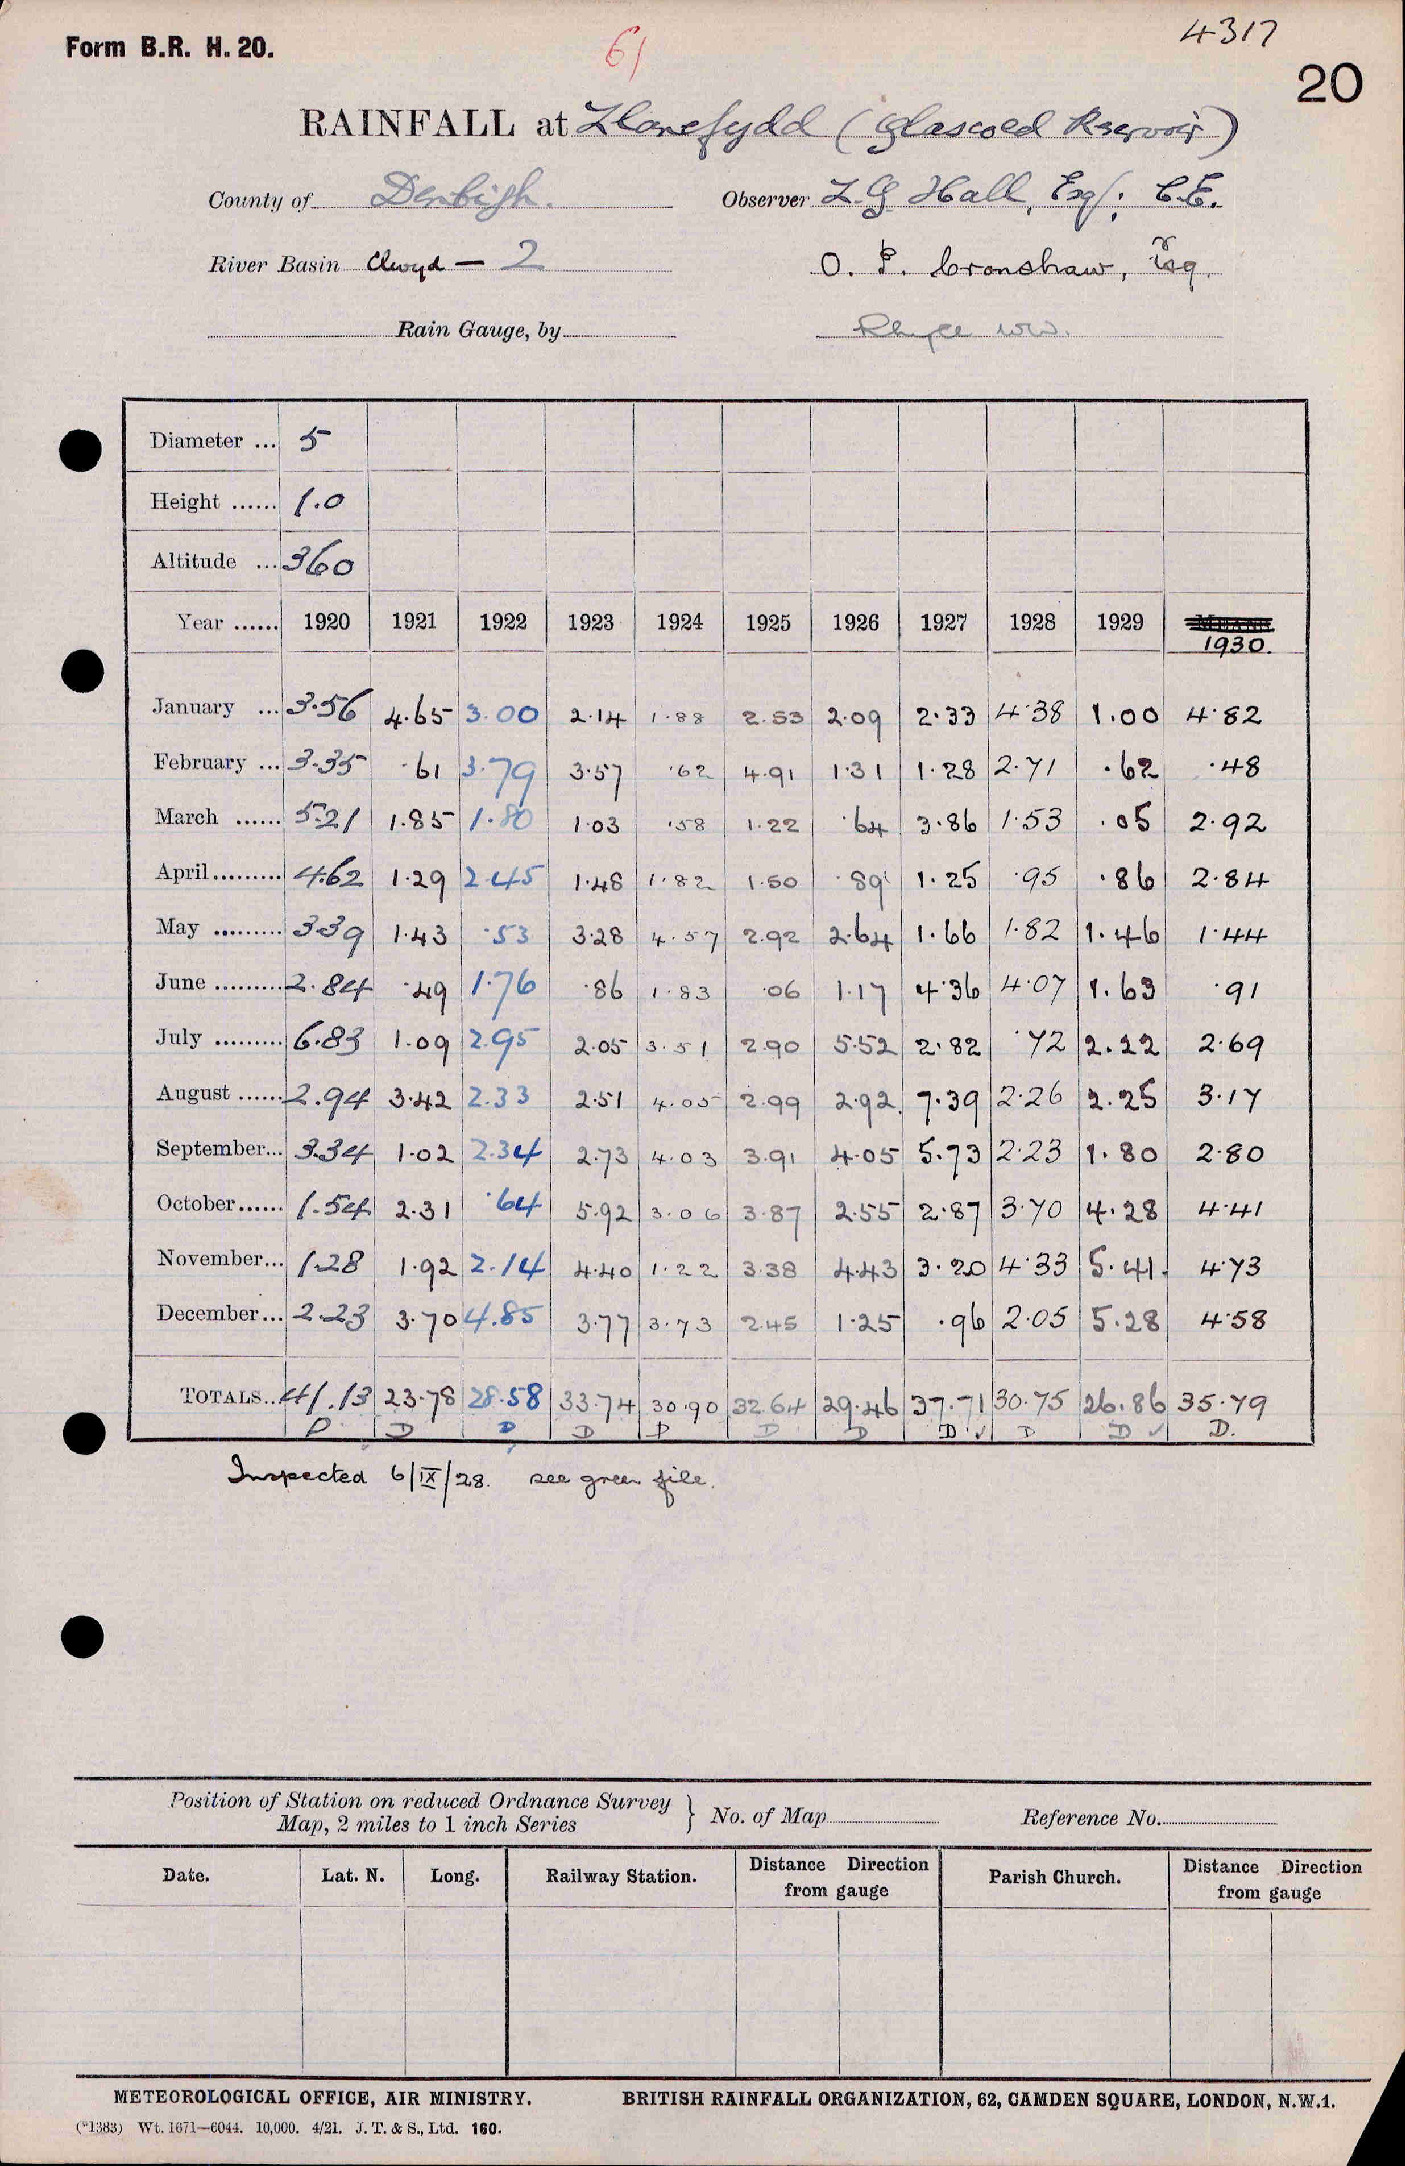 Form B.R. H. 20.
61
4317
20
RAINFALL at Llanefydd (Glascoed Reservoir)
County of Denbigh. Observer L. G Hall, Esq; C.E.
River Basin Clwyd — 2 O. P. Cronshaw, Esq.
Rain Gauge, by
Diameter ... 5
Height ...... 1.0
Altitude ... 360
Year ...... 1920 1921 1922 1923 1924 1925 1926 1927 1928 1929 1930.
January ... 3.56 4.65 3.00 2.14 1.88 2.53 2.09 2.33 4.38 1.00 4.82
February ... 3.35 .61 3.79 3.57 .62 4.91 1.31 1.28 2.71 .62 .48
March ...... 5.21 1.85 1.80 1.03 .58 1.22 .64 3.86 1.53 .05 2.92
April......... 4.62 1.29 2.45 1.48 1.82 1.50 .89 1.25 .95 .86 2.84
May ......... 3.39 1.43 .53 3.28 4.57 2.92 2.64 1.66 1.82 1.46 1.44
June ......... 2.84 .49 1.76 .86 1.83 .06 1.17 4.36 4.07 1.63 .91
July ......... 6.83 1.09 2.95 2.05 3.51 2.90 5.52 2.82 .72 2.22 2.69
August ...... 2.94 3.42 2.33 2.51 4.05 2.99 2.92 7.39 2.26 2.25 3.17
September... 3.34 1.02 2.34 2.73 4.03 3.91 4.05 5.73 2.23 1.80 2.80
October...... 1.54 2.31 .64 5.92 3.06 3.87 2.55 2.87 3.70 4.28 4.41
November... 1.28 1.92 2.14 4.40 1.22 3.38 4.43 3.20 4.33 5.41 4.73
December... 2.23 3.70 4.85 3.77 3.73 2.45 1.25 .96 2.05 5.28 4.58
TOTALS.. 41.13 23.78 28.58 33.74 30.90 32.64 29.46 37.71 30.75 26.86 35.79
D D D D D D D D ✓ D D ✓ D.
Inspected 6/IX/28. see green file.
Position of Station on reduced Ordnance Survey
Map, 2 miles to 1 inch Series } No. of Map Reference No.
Date. Lat. N. Long. Railway Station. Distance Direction from gauge Parish Church. Distance Direction from gauge
METEOROLOGICAL OFFICE, AIR MINISTRY. BRITISH RAINFALL ORGANIZATION, 62, CAMDEN SQUARE, LONDON, N.W.1.
(*1383) Wt. 1671—6044. 10,000. 4/21. J. T. & S., Ltd. 160.